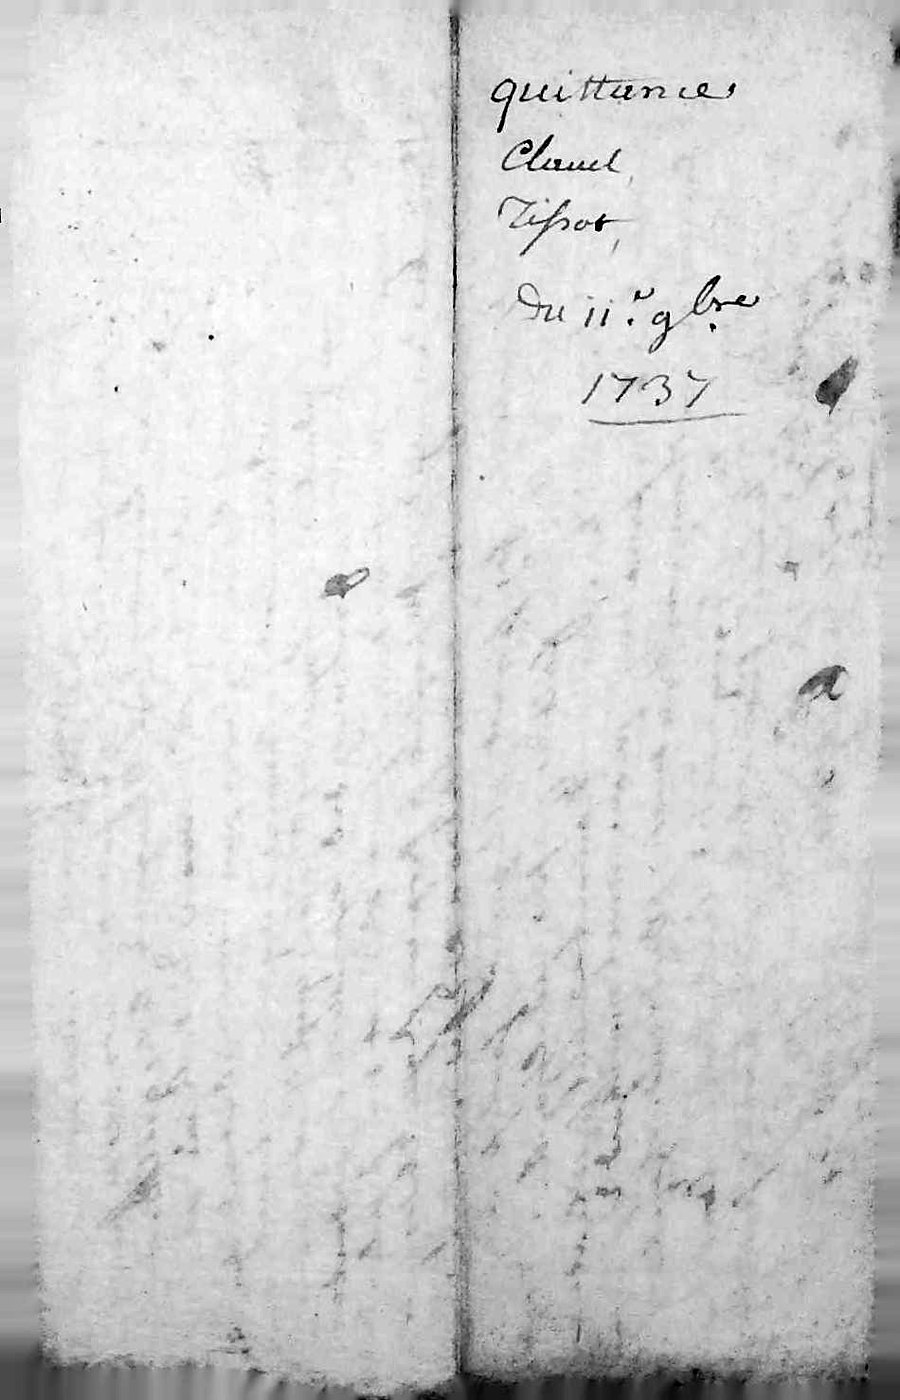 quittance
Claud
Tissot
Du 11.e 9bre
1737